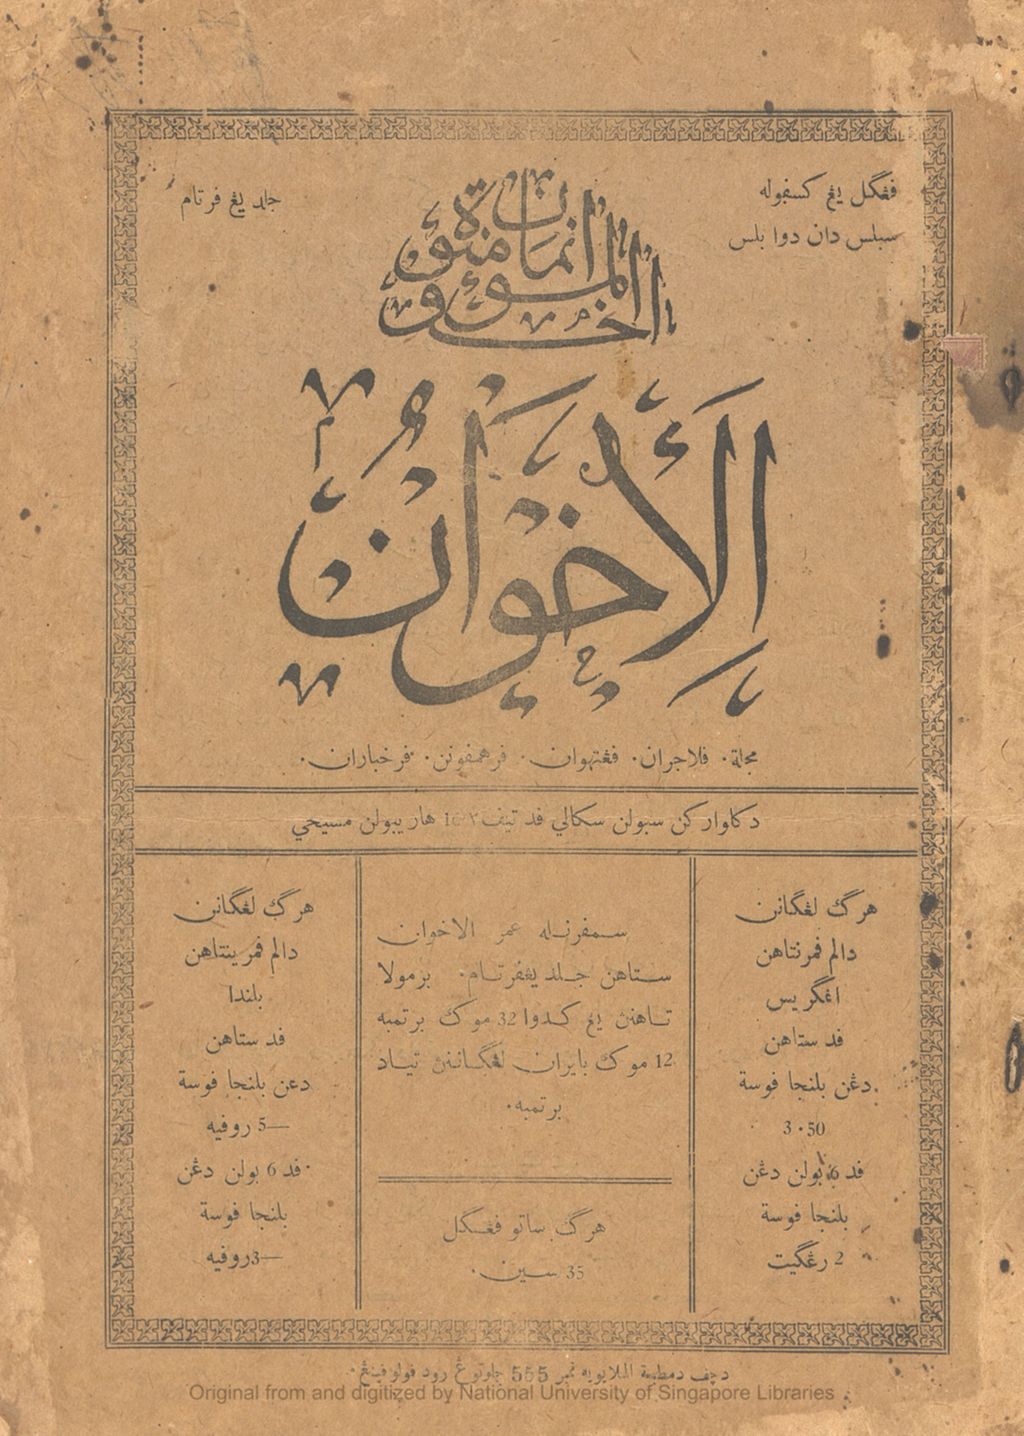 ڤڠݢل يڠ كسڤوله
سبلس دان دوا بلس
جلد يڠ ڤرتام
انما المؤمنون اخوة
الإخوان
مجلة٠ ڤلاجران٠ ڤڠتهوان٠ ڤرهمڤونن٠ ڤرخباران٠
دكلواركن سبولن سكالي ڤد تيڤ٢ 16 هاريبولن مسيحي
هرݢ لڠݢانن
دالم ڤمرنتاهن
اڠݢريس
ڤد ستاهن
دڠن بلنجا ڤوسة
3٠50
ڤد 6 بولن دڠن
بلنجا ڤوسة
2 رڠݢيت
سمڤرناله عمر الاخوان
ستاهن جلد يڠڤرتام٠ برمولا
تاهنن يڠ كدوا 32 موك برتمبه
12 موك بايران لڠݢانن تياد
برتمبه٠
هرݢ ساتو ڤڠݢل
35 سين٠
هرݢ لڠݢانن
دالم ڤمرينتاهن
بلندا
ڤد ستاهن
دعن بلنجا ڤوسة
5— روڤيه
ڤد 6 بولن دڠن
بلنجا ڤوسة
3— روڤيه
دچڤ دمطبعة الملايويه نمبر 555 جلوتوڠ رود ڤولوڤينڠ٠
Original from and digitized by National University of Singapore Libraries